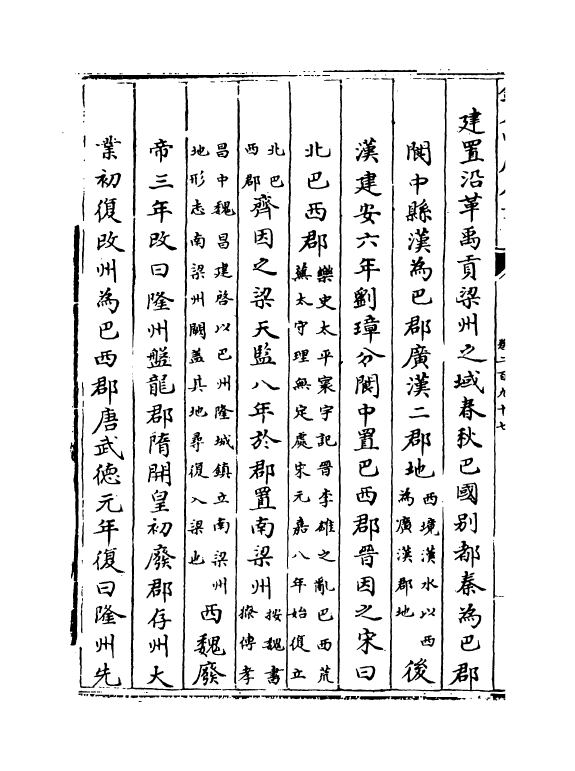 卷二百九十七
建置沿革禹貢梁州之域春秋巴國别都秦為巴郡
閬中縣漢為巴郡廣漢二郡地西境漢水以西為廣漢郡地後
漢建安六年劉璋分閬中置巴西郡晉因之宋曰
北巴西郡樂史太平寰宇記晉李雄之亂巴西荒蕪太守理無定處宋元嘉八年始復立
北巴西郡齊因之梁天監八年於郡置南梁州按魏書獠傳孝
昌中魏昌建啓以巴州隆城鎮立南梁州地形志南梁州闕蓋其地尋復入梁也西魏廢
帝三年改曰隆州盤龍郡隋開皇初廢郡存州大
業初復改州為巴西郡唐武德元年復曰隆州先